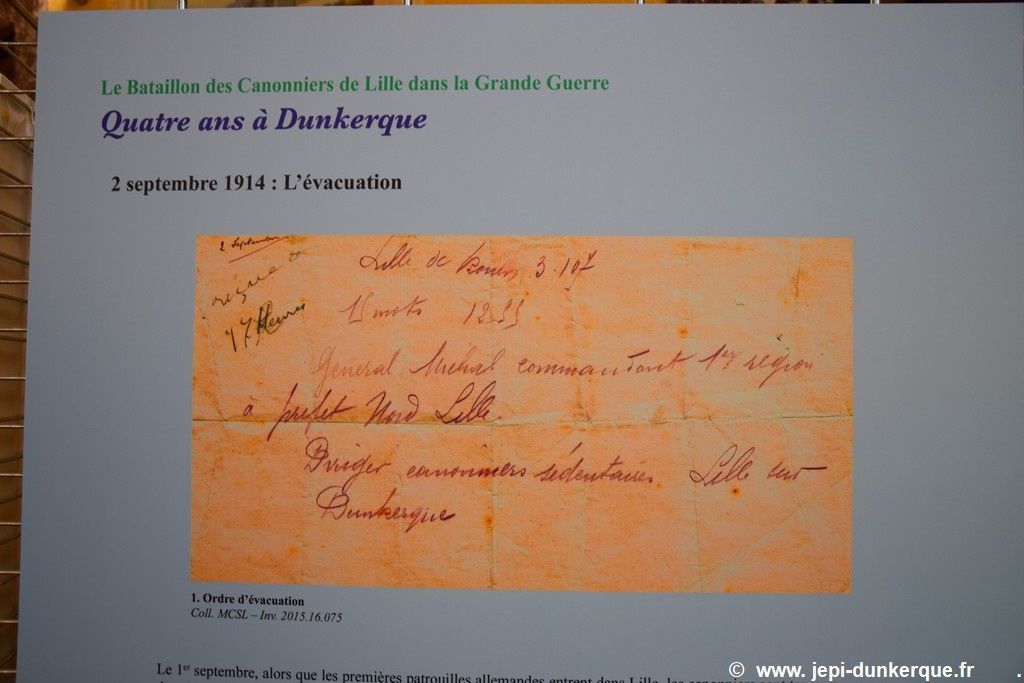 Le Bataillon des Canonniers de Lille dans la Grande Guerre
Quatre ans à Dunkerque
2 septembre 1914 : L'évacuation
2 Septembre
reçue à
17 Heures
Lille de Rouen 3.107
15 mots 12 55
Général Michel commandant 1er région
à préfet Nord Lille.
Diriger canonniers sédentaires Lille sur
Dunkerque
1. Ordre d'évacuation
Coll. MCSL – Inv. 2015.16.075
Le 1er septembre, alors que les premières patrouilles allemandes entrent dans Lille, les
© www. jepi-dunkerque.fr